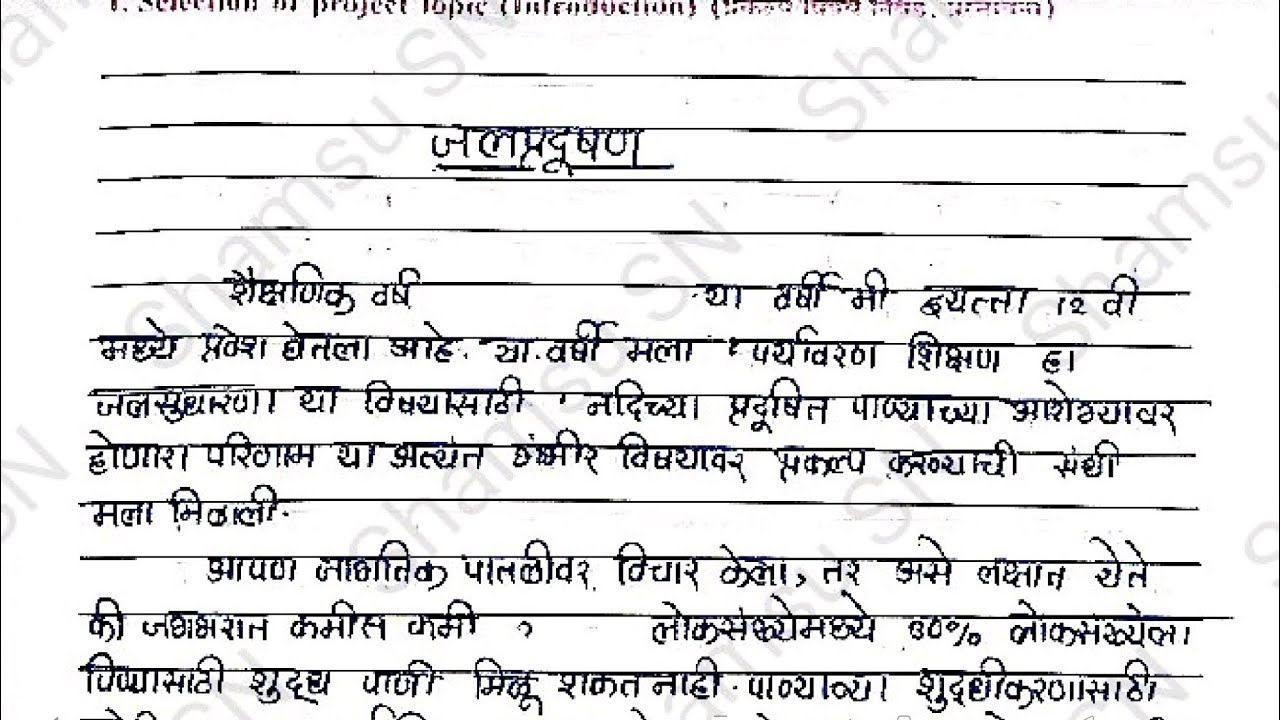 1. Selection of project topic (Introduction) (प्रकल्प विषय निवड, प्रस्तावना)
जलप्रदूषण
शैक्षणिक वर्ष या वर्षी मी इयत्ता 12 वी
मध्ये प्रवेश घेतला आहे. या वर्षी मला 'पर्यावरण शिक्षण हा
जलसुधारणा या विषयासाठी ' नदिच्या प्रदूषित पाण्याच्या आरोग्यावर
होणारा परिणाम या अत्यंत गंभीर विषयावर प्रकल्प करण्याची संधी
मला मिळाली.
आपण जागतिक पातळीवर विचार केला, तर असे लक्षात येते
की जगभरात कमीत कमी लोकसंख्येमध्ये 80% लोकसंख्येला
पिण्यासाठी शुद्ध पाणी मिळू शकत नाही. पाण्याच्या शुद्धीकरणासाठी
Shamsu SN